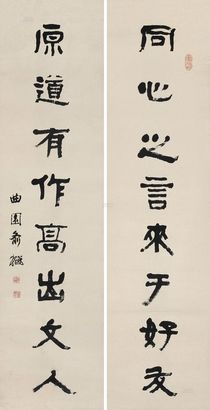 同心之言來于好友
原道有作高出文人
曲園俞樾